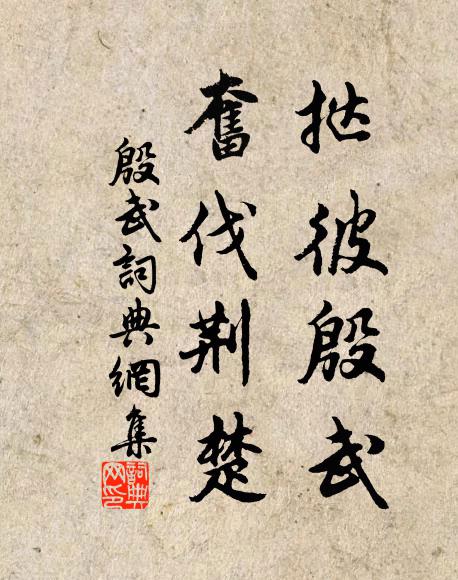 挞彼殷武
奮伐荆楚
殷武詞典網集
詞典网印